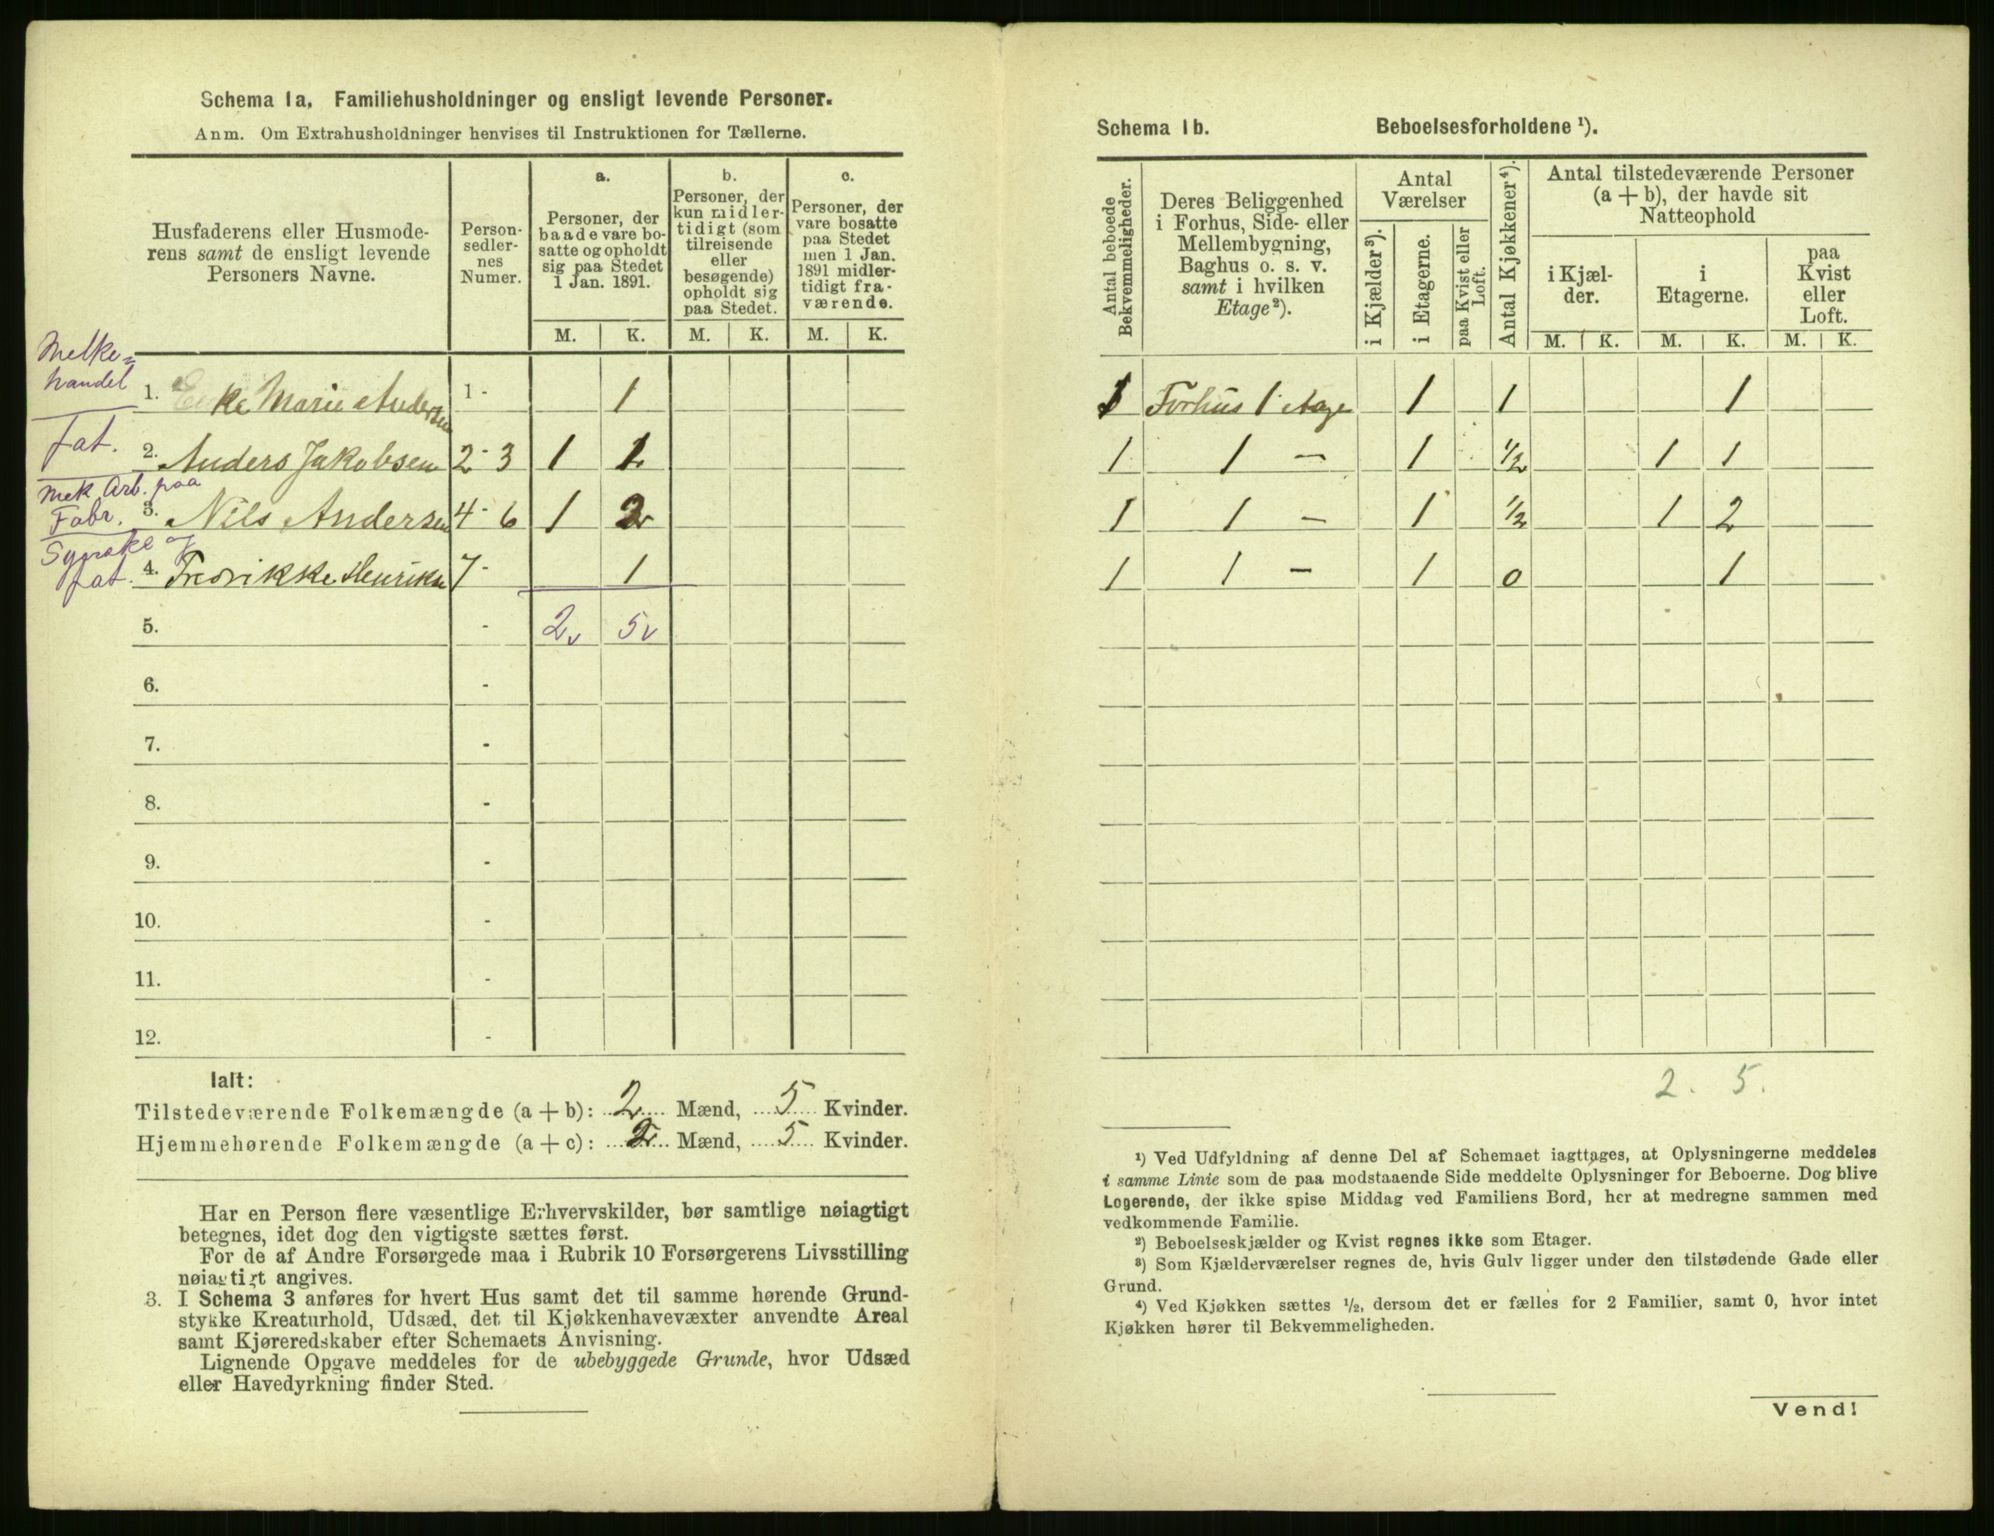 Schema 1a. Familiehusholdninger og ensligt levende Personer.
Anm. Om Extrahusholdninger henvises til Instruktionen for Tællerne.
Husfaderens eller Husmode-
rens samt de ensligt levende
Personers Navne.
Person-
sedler-
nes
Numer.
a.
Personer, der
baade vare bo-
satte og opholdt
sig paa Stedet
1 Jan. 1891.
b.
Personer, der
kun midler-
tidigt (som
tilreisende
eller
besøgende)
opholdt sig
paa Stedet.
c.
Personer, der
vare bosatte
paa Stedet
men 1 Jan.
1891 midler-
tidigt fra-
værende.
M. K. M. K. M. K.
Melke-
handel
1. Enke Marie Andersen 1 - 1
fat.
2. Anders Jakobsen 2 - 3 1 1
Mek Arb. paa
Fabr.
3. Nils Andersen 4 - 6 1 2
Syerske og
fat.
4. Fredrikke Henriks 7 - 1
5. - 2 5
6. -
7. -
8. -
9. -
10. -
11. -
12. -
Ialt:
Tilstedeværende Folkemængde (a + b): 2 Mænd, 5 Kvinder.
Hjemmehørende Folkemængde (a + c): 2 Mænd, 5 Kvinder.
Har en Person flere væsentlige Erhvervskilder, bør samtlige nøiagtigt
betegnes, idet dog den vigtigste sættes først.
For de af Andre Forsørgede maa i Rubrik 10 Forsørgerens Livsstilling
nøiagtigt angives.
3. I Schema 3 anføres for hvert Hus samt det til samme hørende Grund-
stykke Kreaturhold, Udsæd, det til Kjøkkenhavevæxter anvendte Areal
samt Kjøreredskaber efter Schemaets Anvisning.
Lignende Opgave meddeles for de ubebyggede Grunde, hvor Udsæd
eller Havedyrkning finder Sted.
Schema 1b. Beboelsesforholdene ¹).
Antal beboede
Bekvemmeligheder.
Deres Beliggenhed
i Forhus, Side- eller
Mellembygning,
Baghus o. s. v.
samt i hvilken
Etage²).
Antal
Værelser
i Kjælder³).
i Etagerne.
paa Kvist eller
Loft.
Antal Kjøkkener⁴).
Antal tilstedeværende Personer
(a + b), der havde sit
Natteophold
i Kjæl-
der.
i
Etagerne.
paa
Kvist
eller
Loft.
M. K. M. K. M. K.
1 Forhus 1 Etage 1 1 1
1 1 - 1 ½ 1 1
1 1 - 1 ½ 1 2
1 1 - 1 0 1
2. 5.
¹) Ved Udfyldning af denne Del af Schemaet iagttages, at Oplysningerne meddeles
i samme Linie som de paa modstaaende Side meddelte Oplysninger for Beboerne. Dog blive
Logerende, der ikke spise Middag ved Familiens Bord, her at medregne sammen med
vedkommende Familie.
²) Beboelseskjælder og Kvist regnes ikke som Etager.
³) Som Kjælderværelser regnes de, hvis Gulv ligger under den tilstødende Gade eller
Grund.
⁴) Ved Kjøkken sættes ½, dersom det er fælles for 2 Familier, samt 0, hvor intet
Kjøkken hører til Bekvemmeligheden.
Vend!